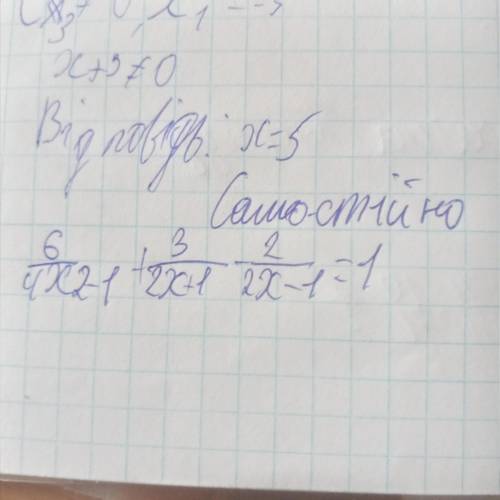 x+3≠0
Відповідь: x=5
Самостійно
6/4x2-1 + 3/2x+1 - 2/2x-1 = 1